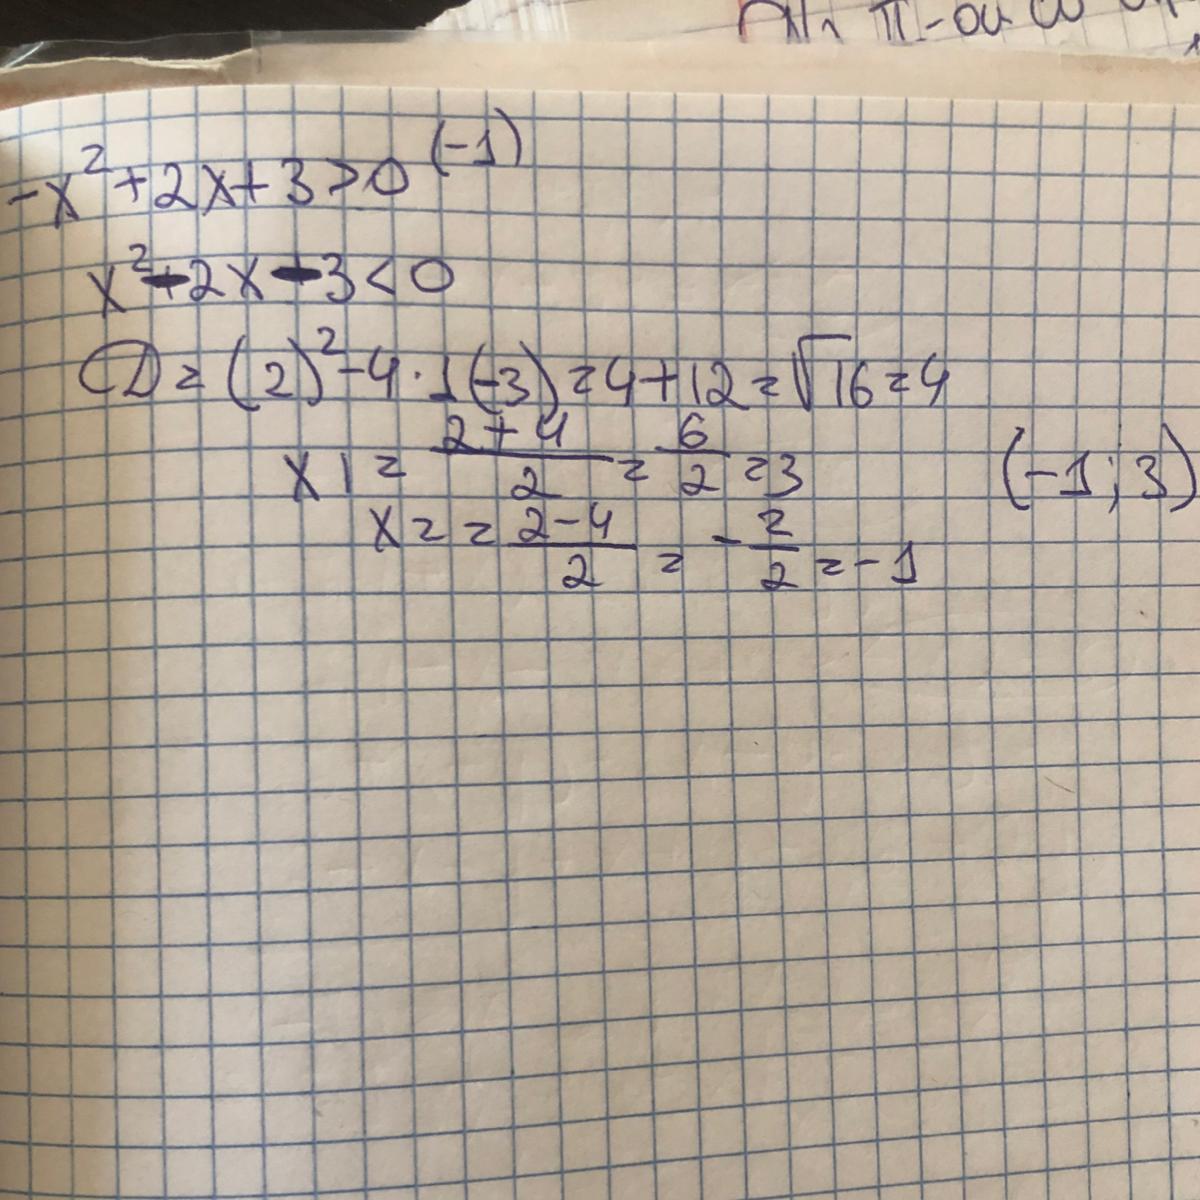 π-ой
-x²+2x+3>0 (-1)
x²-2x-3<0
D=(2)²-4·1(-3)=4+12=√16=4
x1=2+4/2=6/2=3
(-1;3)
x2=2-4/2=-2/2=-1